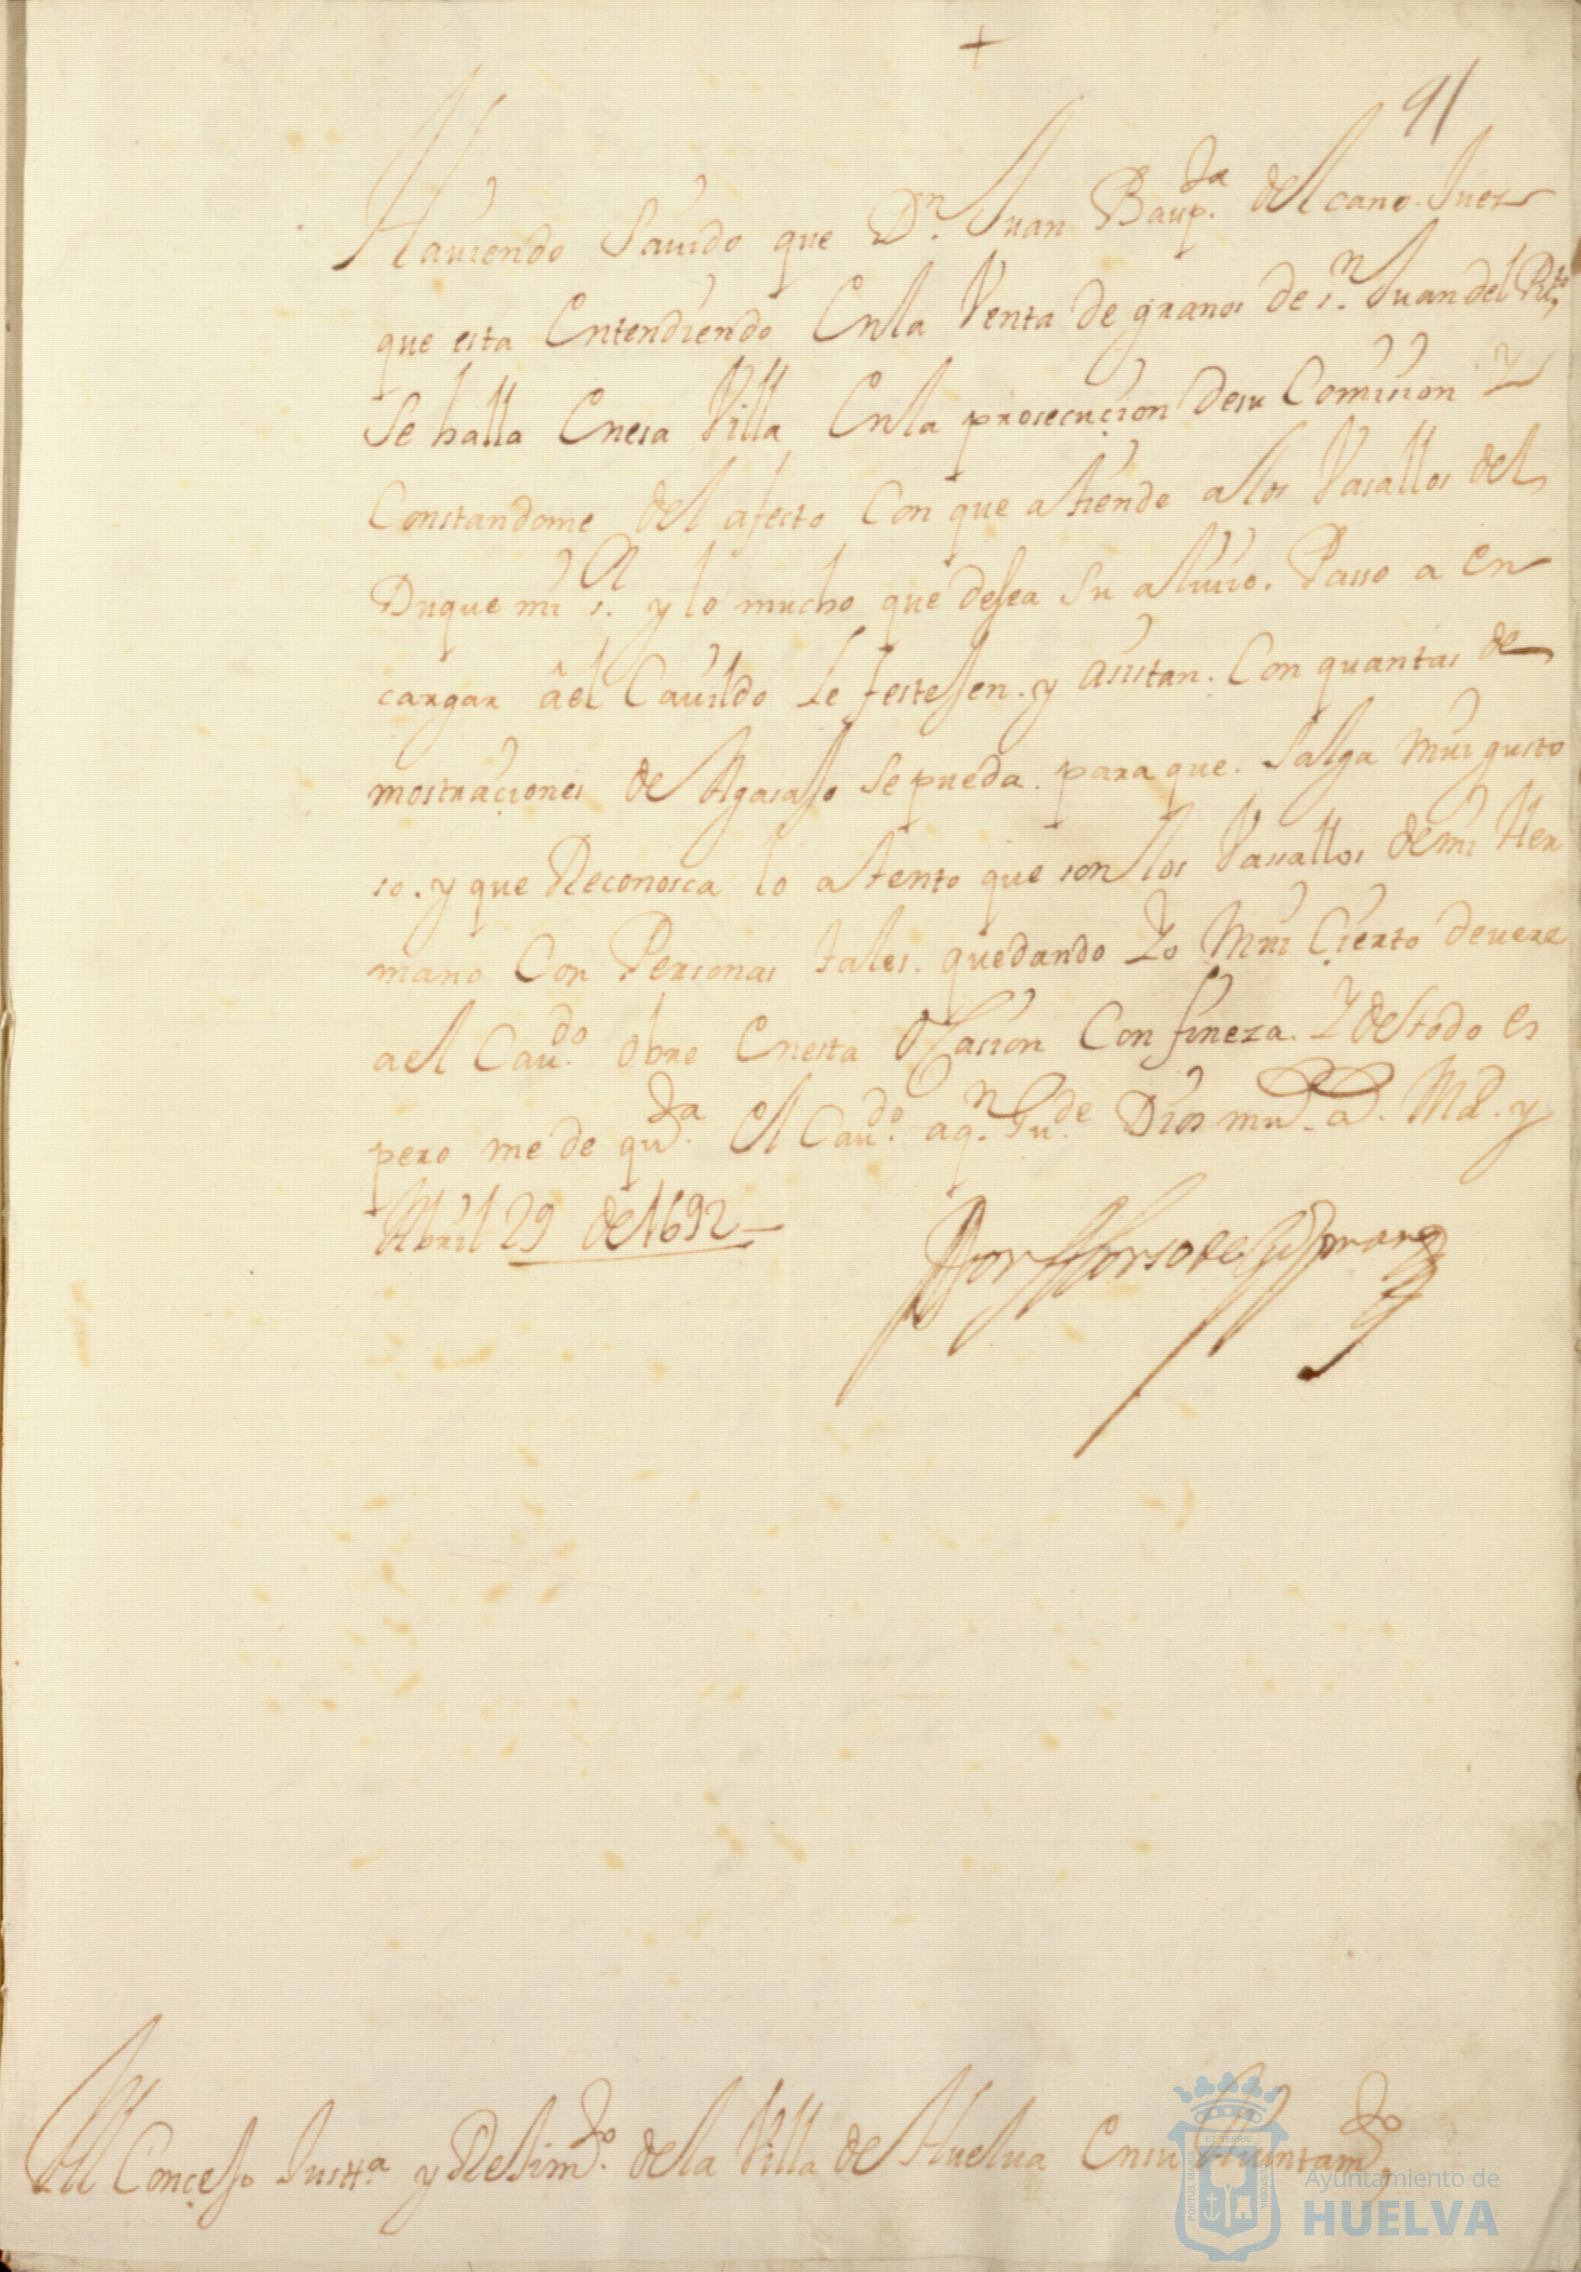 +
91
Hauiendo Sauido que Dn. Juan Baupta. delcano. Juez
que esta Entendiendo Enla Venta de granos de sn. Juan del Pto.
Se halla Enesa Villa Enla prosecuçion desu Comision Y
Constandome del afecto Con que atiende alos Vasallos del
Duque mi sr. y lo mucho que desea Su aliuio. Passo a en
cargar âel Cauildo Le festejen. y asistan. Con quantas de
mostraçiones de Agasajo Se pueda. para que. Salga Mui gusto
so. y que Reconosca lo atento que son los Vassallos demi Her
mano Con Personas tales. quedando Yo Mui Çierto deuere
ael Caudo. obre Enesta Ocasion Con fineza. Y deltodo es
pero me de quta. El Caudo. aqn. Gude. Dios mu. a. Md. y
Abril 29 de 1692
Al Conçejo Justta. y Rejimto. dela Villa de Huelua Ensu Aiuntamto.
PORTUS MARIS ET TERRÆ CUSTODIA
Ayuntamiento de
HUELVA